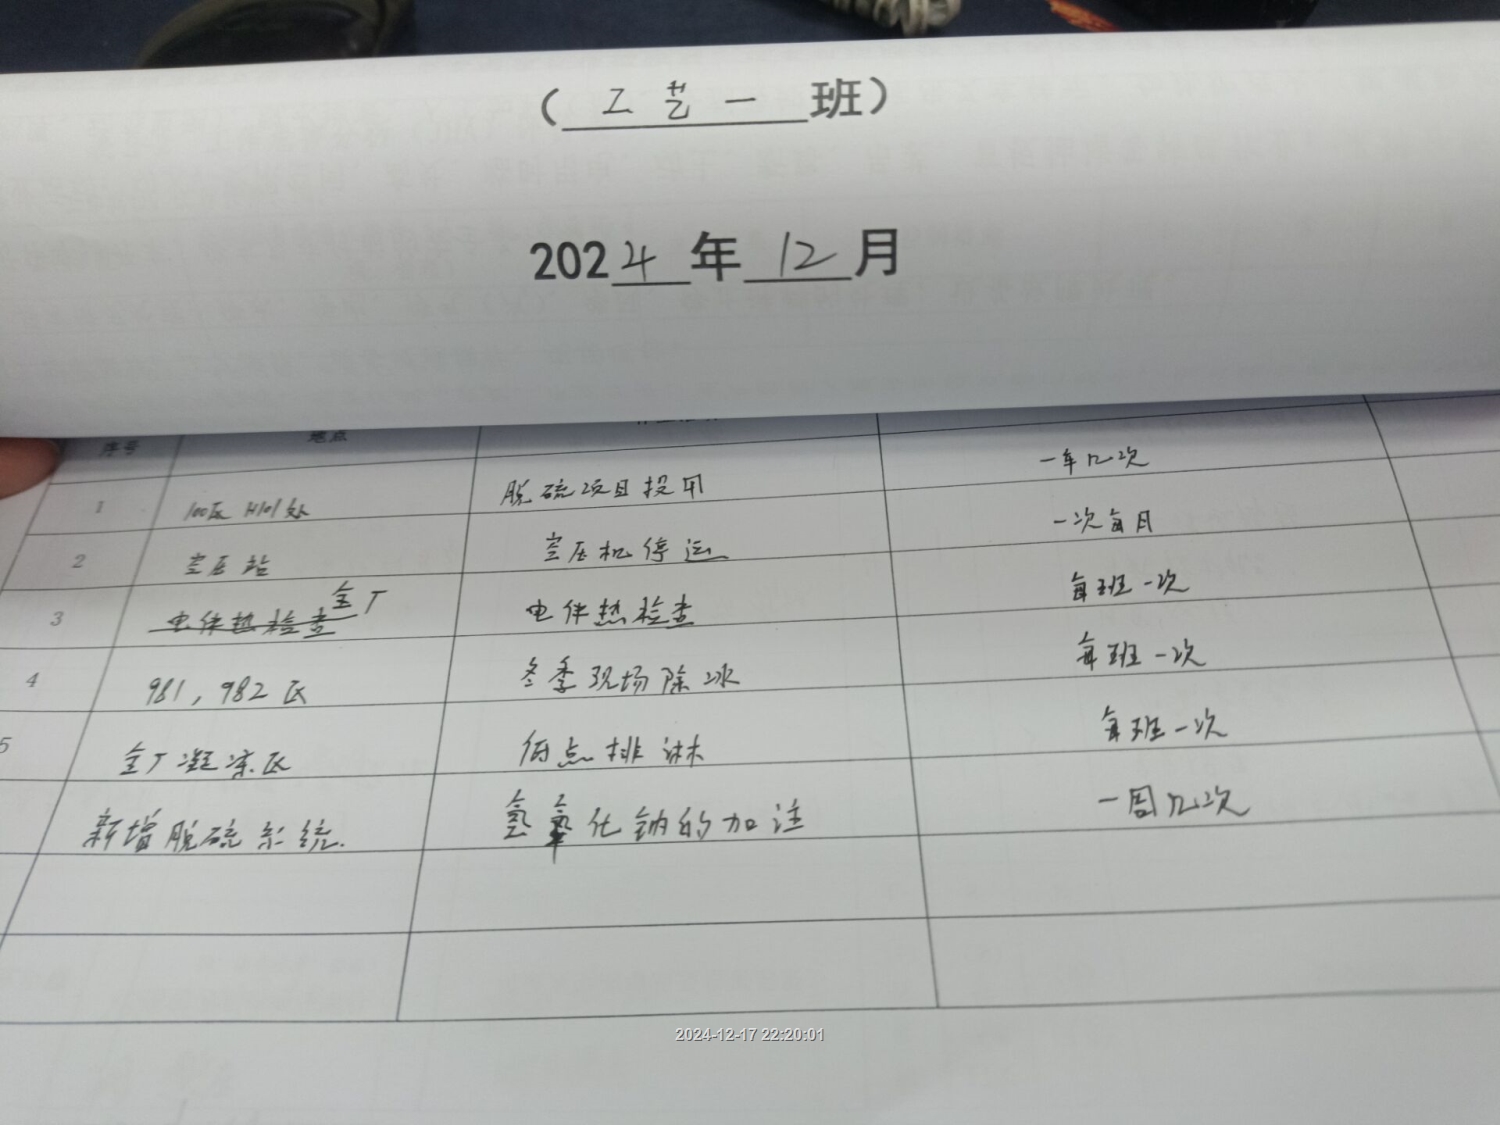 （工艺一班）
2024年12月
序号 地点
1 100区 H101处 脱硫项目投用 一年几次
2 空压站 空压机停运 一次每月
3 电伴热检查 全厂 电伴热检查 每班一次
4 981，982区 冬季现场除冰 每班一次
5 全厂凝冻区 低点排淋 每班一次
新增脱硫系统. 氢氧化钠的加注 一周几次
2024-12-17 22:20:01